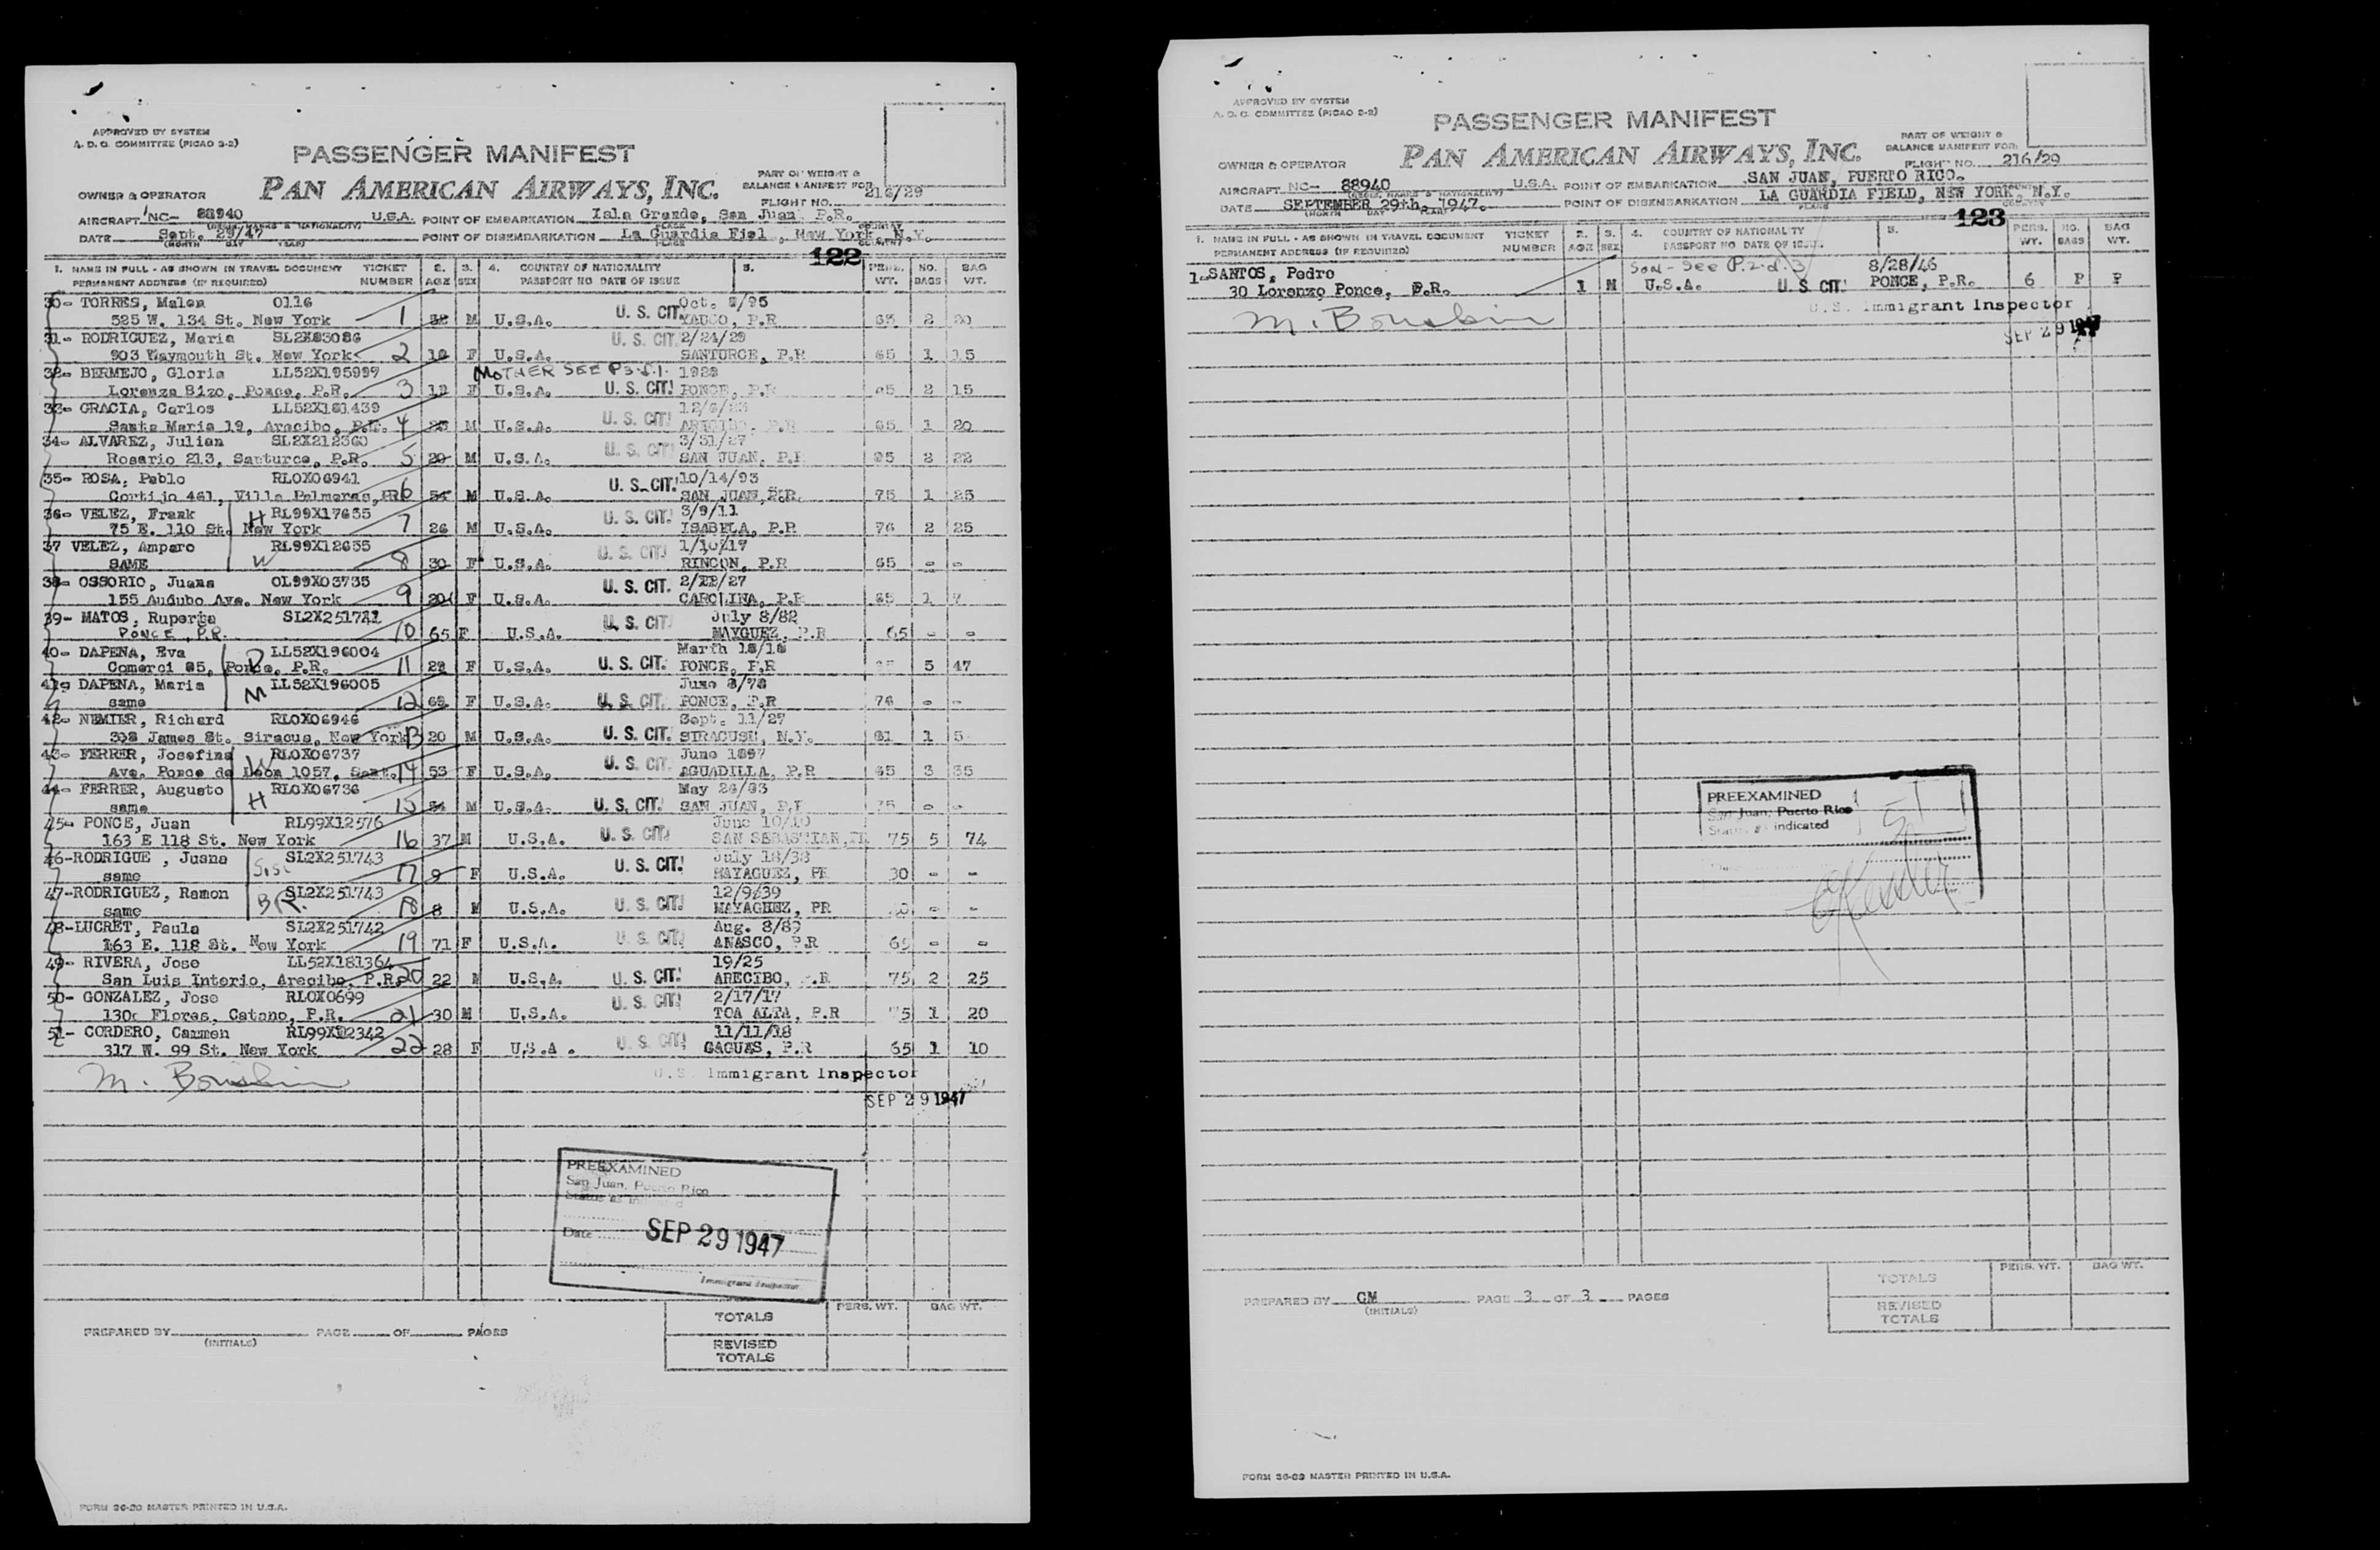 APPROVED BY SYSTEM
A. D. C. COMMITTEE (PICAO 3-2)
PASSENGER MANIFEST
PART OF WEIGHT &
BALANCE MANIFEST FOR
OWNER & OPERATOR PAN AMERICAN AIRWAYS, INC.
FLIGHT NO. 216/29
AIRCRAFT NC- 88940 U.S.A. POINT OF EMBARKATION Isla Grande, San Juan P.R.
DATE Sept. 29/47 POINT OF DISEMBARKATION La Guardia Fiel , New York N.Y.
122
1. NAME IN FULL - AS SHOWN IN TRAVEL DOCUMENT TICKET 2. 3. 4. COUNTRY OF NATIONALITY 5. PERS. NO. BAG
PERMANENT ADDRESS (IF REQUIRED) NUMBER AGE SEX PASSPORT NO DATE OF ISSUE WT. BAGS WT.
30- TORRES, Malen 0116 Oct. /95
525 W. 134 St. New York 1 M U.S.A. U. S. CIT. YAUCO, P.R 65 2 20
31- RODRIGUEZ, Maria SL2X83086 2/24/29
903 Waymouth St. New York 2 18 F U.S.A. U. S. CIT. SANTURCE, P.R 65 1 15
32- BERMEJO, Gloria LL52X195997 MOTHER SEE P3.l.1. 1928
Lorenza Bizo, Ponce, P.R. 3 F U.S.A. U. S. CIT! PONCE, P.R 65 2 15
33- GRACIA, Carlos LL52X181439
Santa Maria 19, Arecibo, P.R. 4 M U.S.A. U. S. CIT! ARECIBO, P.R 65 1 20
34- ALVAREZ, Julian SL2X212360 3/31/27
Rosario 213, Santurce, P.R. 5 20 M U.S.A. U. S. CIT! SAN JUAN, P.R 2 22
35- ROSA, Pablo RLOX06941 10/14/93
Cortijo 461, Villa Palmeras, PR 6 54 M U.S.A. U. S. CIT! SAN JUAN, P.R. 75 1 25
36- VELEZ, Frank H RL99X17655 3/9/11
75 E. 110 St. New York 7 26 M U.S.A. U. S. CIT! ISABELA, P.R 76 2 25
37 VELEZ, Amparo RL99X12655 1/10/17
SAME W 8 30 F U.S.A. U. S. CIT! RINCON, P.R 65 - -
38- OSSORIO, Juana OL99X03735 2/22/27
155 Audubo Ave. New York 9 20 F U.S.A. U. S. CIT. CAROLINA, P.R 65 1 7
39- MATOS, Ruperta SL2X251741 July 8/82
PONCE, P.R. 10 65 F U.S.A. U. S. CIT! MAYGUEZ, P.R 65 - -
40- DAPENA, Eva D LL52X196004
Comerci 85, Ponce, P.R. 11 F U.S.A. U. S. CIT. PONCE, P.R 5 47
41- DAPENA, Maria M LL52X196005 June 8/78
same 12 F U.S.A. U. S. CIT! PONCE, P.R 76 - -
42- NEMIER, Richard RLOX06946 Sept. 11/27
308 James St. Siracus, New York 13 20 M U.S.A. U. S. CIT. SIRACUSE, N.Y. 81 1 5
43- FERRER, Josefina W RLOX06737 June 1897
Ave. Ponce de Leon 1057, Sant. 14 53 F U.S.A. U. S. CIT. AGUADILLA, P.R 65 3 35
44- FERRER, Augusto H RLOX06736 May 26/93
same 15 54 M U.S.A. U. S. CIT! SAN JUAN, P.R 75 - -
45- PONCE, Juan RL99X12576 June 10/10
163 E 118 St. New York 16 37 M U.S.A. U. S. CIT! SAN SEBASTIAN, PR 75 5 74
46-RODRIGUE , Juana Sis SL2X251743 July 18/38
same 17 9 F U.S.A. U. S. CIT! MAYAGUEZ, PR 30 - -
47-RODRIGUEZ, Ramon BR. SL2X251743 12/9/39
same 18 8 M U.S.A. U. S. CIT! MAYAGUEZ, PR - -
48-LUCRET, Paula SL2X251742 Aug. 8/89
163 E. 118 St. New York 19 71 F U.S.A. U. S. CIT! ANASCO, P.R 65 - -
49- RIVERA, Jose LL52X181364 19/25
San Luis Interio, Arecibo, P.R. 20 22 M U.S.A. U. S. CIT! ARECIBO, P.R 75 2 25
50- GONZALEZ, Jose RLOX0699 2/17/17
130c Flores, Catano, P.R. 21 30 M U.S.A. U. S. CIT! TOA ALTA, P.R 75 1 20
51- CORDERO, Carmen RL99X12342 11/11/18
317 W. 99 St. New York 22 28 F U.S.A. U. S. CIT! CAGUAS, P.R 65 1 10
M. Bourskin U.S. Immigrant Inspector
SEP 29 1947
PREEXAMINED
San Juan, Puerto Rico
Status as indicated
Date SEP 29 1947
Immigrant Inspector
PERS. WT. BAG WT.
TOTALS
PREPARED BY (INITIALS) PAGE OF PAGES
REVISED
TOTALS
FORM 36-20 MASTER PRINTED IN U.S.A.
APPROVED BY SYSTEM
A. D. C. COMMITTEE (PICAO 3-2)
PASSENGER MANIFEST
PART OF WEIGHT &
BALANCE MANIFEST FOR:
OWNER & OPERATOR PAN AMERICAN AIRWAYS, INC.
FLIGHT NO. 216/29
AIRCRAFT NC- 88940 U.S.A. POINT OF EMBARKATION SAN JUAN, PUERTO RICO.
DATE SEPTEMBER 29th, 1947. POINT OF DISEMBARKATION LA GUARDIA FIELD, NEW YORK, N.Y.
123
1. NAME IN FULL - AS SHOWN IN TRAVEL DOCUMENT TICKET 2. 3. 4. COUNTRY OF NATIONALITY 5. PERS. NO. BAG
PERMANENT ADDRESS (IF REQUIRED) NUMBER AGE SEX PASSPORT NO DATE OF ISSUE WT. BAGS WT.
1-SANTOS, Pedro Son - See P.2.l.3 8/28/46
30 Lorenzo Ponce, P.R. 1 M U.S.A. U. S. CIT! PONCE, P.R. 6 P P
M. Bourskin U.S. Immigrant Inspector
SEP 29 1947
PREEXAMINED
San Juan, Puerto Rico
Status as indicated
51
Kessler
PERS. WT. BAG WT.
TOTALS
PREPARED BY GM (INITIALS) PAGE 3 OF 3 PAGES
REVISED
TOTALS
FORM 36-20 MASTER PRINTED IN U.S.A.